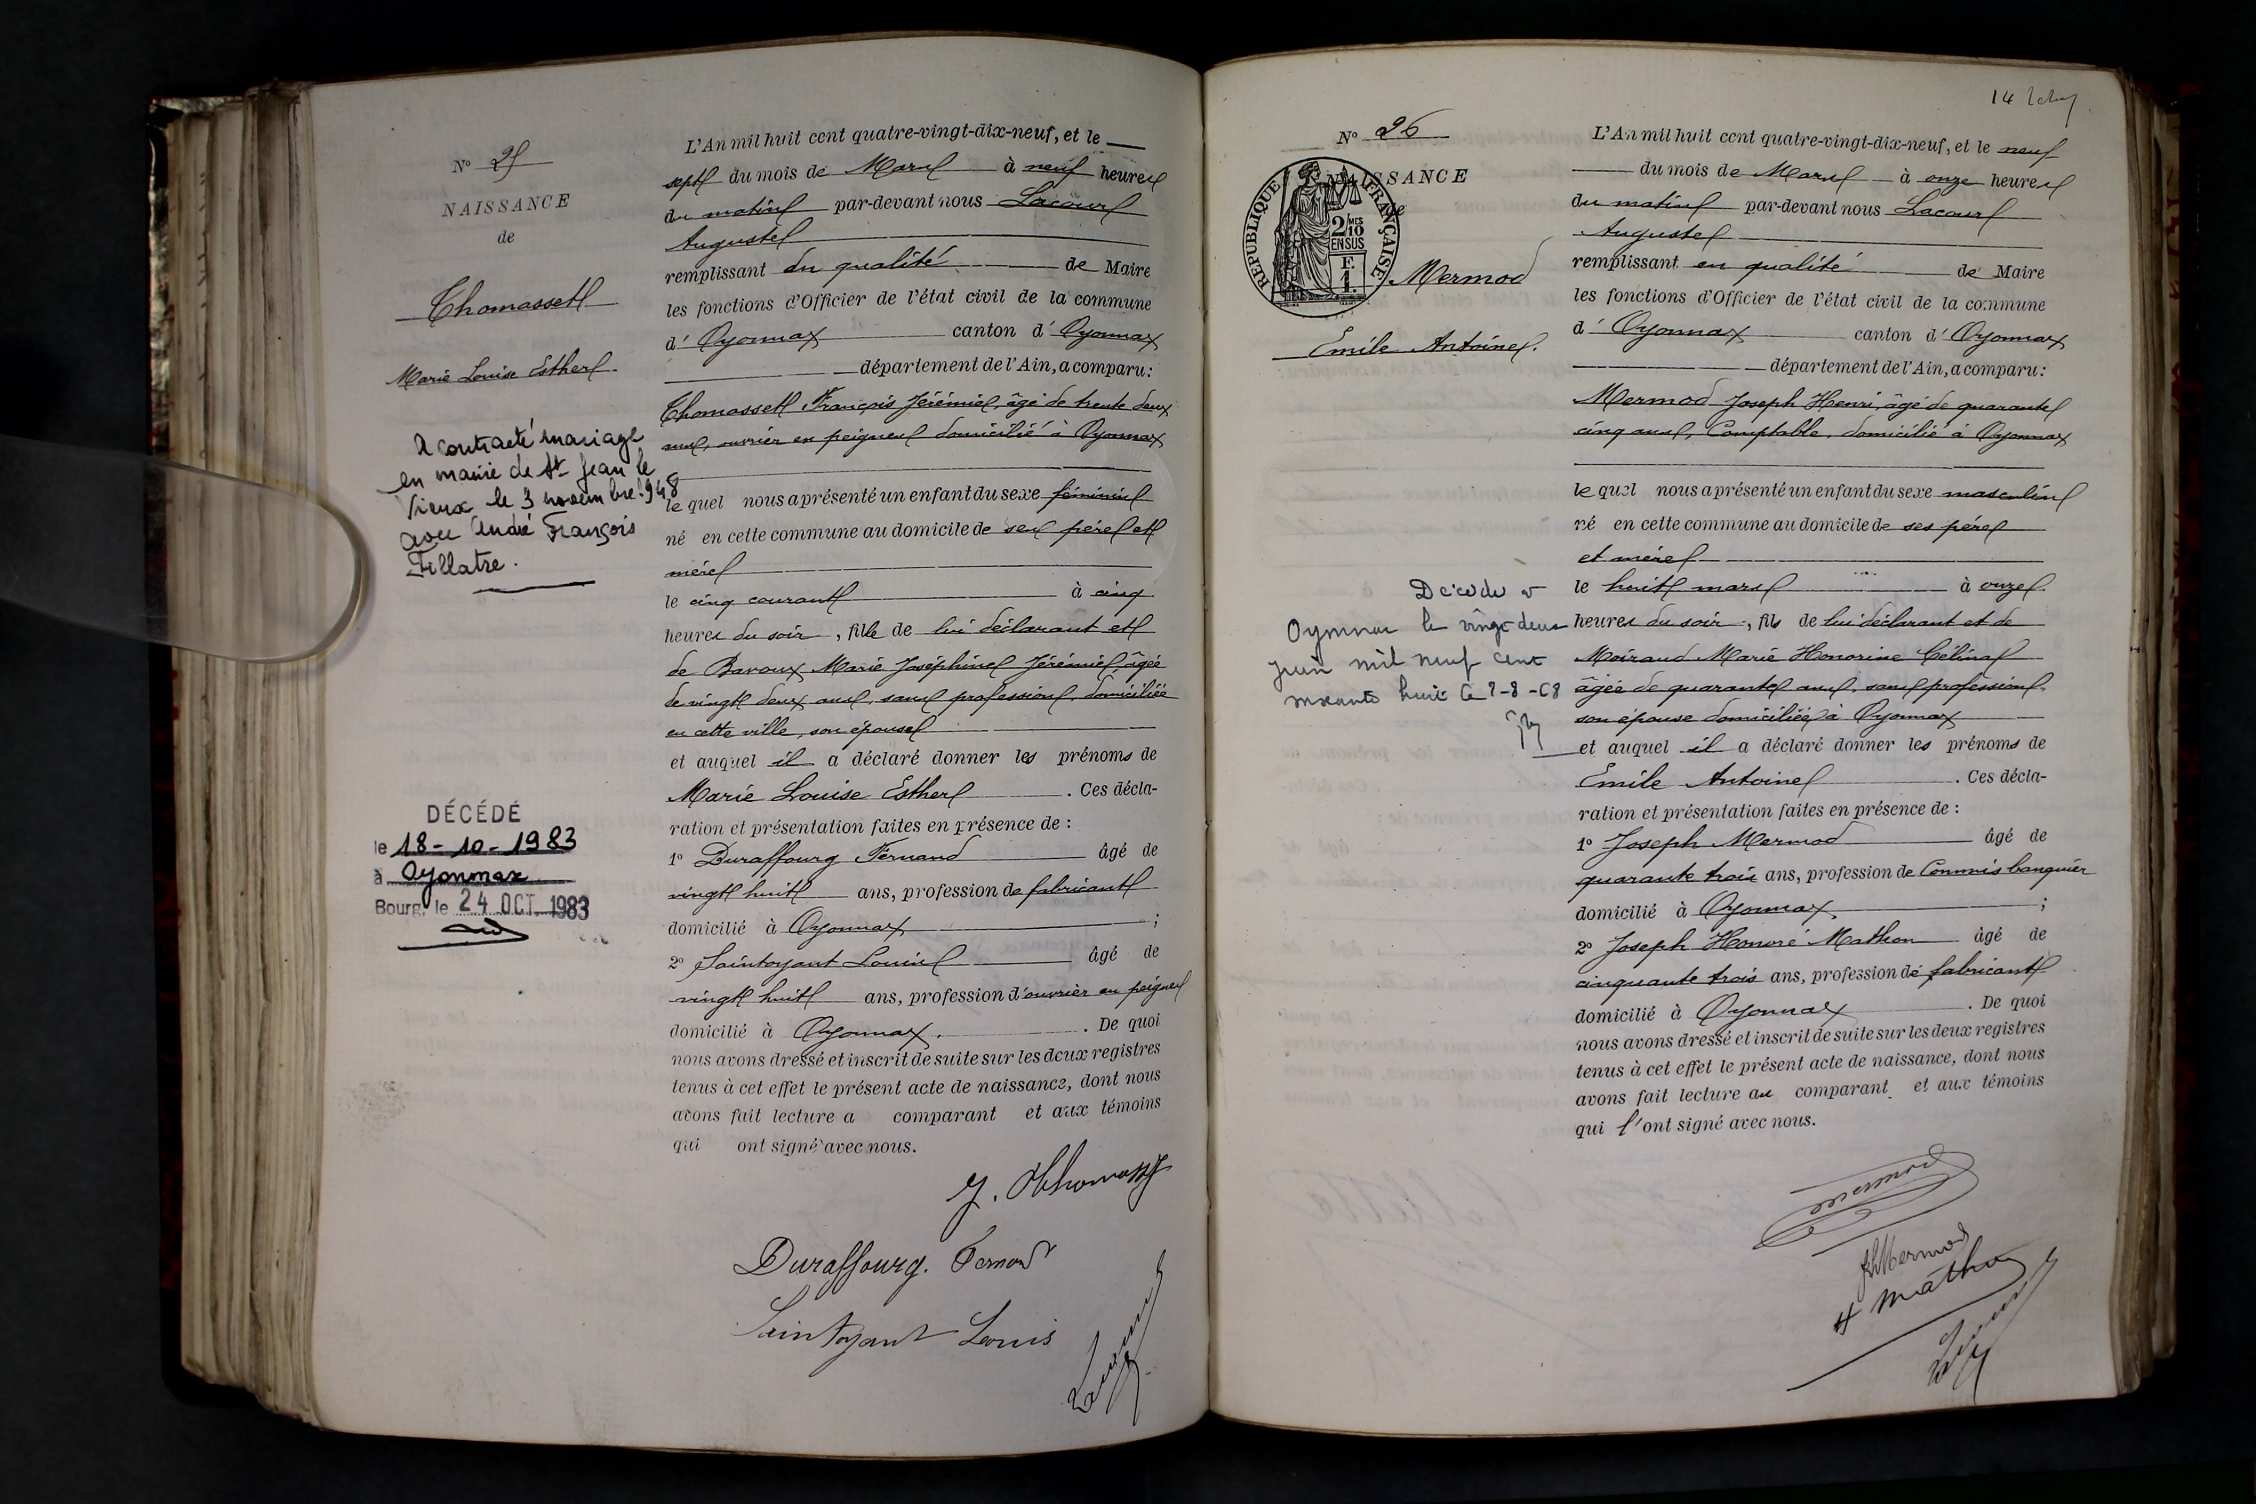 N° 25
NAISSANCE
de
Thomasset
Marie Louise Esther.
A contracté mariage
en mairie de St Jean le
Vieux le 3 novembre 1948
avec André François
Fillatre.
DÉCÉDÉ
le 18-10-1983
à Oyonnax
Bourg, le 24 OCT. 1983
L'An mil huit cent quatre-vingt-dix-neuf, et le
sept du mois de Mars à neuf heures
du matin par-devant nous Lacour
Auguste
remplissant en qualité de Maire
les fonctions d'Officier de l'état civil de la commune
d' Oyonnax canton d' Oyonnax
département de l'Ain, a comparu :
Thomasset François Jérémie, âgé de trente deux
ans, ouvrier en peignes domicilié à Oyonnax
le quel nous a présenté un enfant du sexe féminin
né en cette commune au domicile de ses père et
mère
le cinq courant à cinq
heures du soir, fille de lui déclarant et
de Bavoux Marie Joséphine Jérémie âgée
de vingt deux ans, sans profession, domiciliée
en cette ville, son épouse
et auquel il a déclaré donner les prénoms de
Marie Louise Esther . Ces décla-
ration et présentation faites en présence de :
1° Duraffourg Fernand âgé de
vingt huit ans, profession de fabricant
domicilié à Oyonnax ;
2° Saintoyant Louis âgé de
vingt huit ans, profession d'ouvrier en peignes
domicilié à Oyonnax. . De quoi
nous avons dressé et inscrit de suite sur les deux registres
tenus à cet effet le présent acte de naissance, dont nous
avons fait lecture a comparant et aux témoins
qui ont signé avec nous.
J. Thomasset
Duraffourg. Fernand
Saintoyant Louis
Lacour
14
N° 26
NAISSANCE
de
RÉPUBLIQUE FRANÇAISE
2/10MES
EN SUS
F.
1.
Mermod
Emile Antoine.
Décédé à
Oyonnax le vingt deux
juin mil neuf cent
soixante huit Le 8-8-68
L'An mil huit cent quatre-vingt-dix-neuf, et le neuf
du mois de Mars à onze heures
du matin par-devant nous Lacour
Auguste
remplissant en qualité de Maire
les fonctions d'Officier de l'état civil de la commune
d' Oyonnax canton d' Oyonnax
département de l'Ain, a comparu :
Mermod Joseph Henri, âgé de quarante
cinq ans, Comptable, domicilié à Oyonnax
le quel nous a présenté un enfant du sexe masculin
né en cette commune au domicile de ses père
et mère
le huit mars à onze
heures du soir, fils de lui déclarant et de
Moiraud Marie Honorine Célina
âgée de quarante ans, sans profession,
son épouse domiciliée à Oyonnax
et auquel il a déclaré donner les prénoms de
Emile Antoine . Ces décla-
ration et présentation faites en présence de :
1° Joseph Mermod âgé de
quarante trois ans, profession de Commis banquier
domicilié à Oyonnax, ;
2° Joseph Honoré Mathon âgé de
cinquante trois ans, profession de fabricant
domicilié à Oyonnax . De quoi
nous avons dressé et inscrit de suite sur les deux registres
tenus à cet effet le présent acte de naissance, dont nous
avons fait lecture au comparant et aux témoins
qui l'ont signé avec nous.
Mermod
Mermod
H Mathon
Lacour